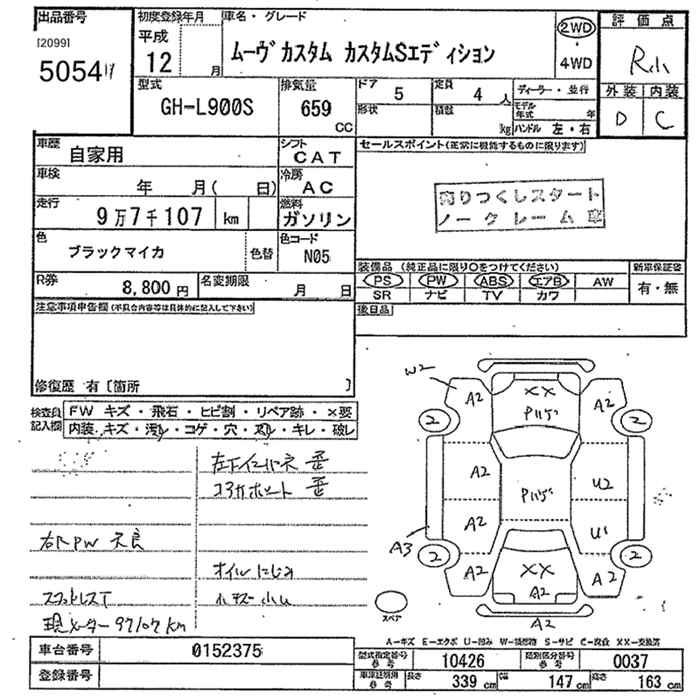 出品番号
[2099]
5054
初度登録年月
平成
12 月
車名・グレード
ムーヴカスタム カスタムSエディション
2WD
・
4WD
評価点
R小
外装 内装
D C
型式
GH-L900S
排気量
659
CC
ドア
5
定員
4 人
形状
積載
kg
ディーラー・並行
モデル
年式 年
ハンドル 左・右
車歴
自家用
シフト
CAT
車検
年 月( 日)
冷房
AC
走行
9万7千107 km
燃料
ガソリン
色
ブラックマイカ
色替
色コード
N05
R券
8,800円
名変期限
月 日
セールスポイント(正常に機能するものに限ります)
売りつくしスタート
ノークレーム車
装備品 (純正品に限り○をつけてください)
PS PW ABS エアB AW
SR ナビ TV カワ
新車保証書
有・無
後日品
注意事項申告欄(不具合内容等は具体的に記入して下さい)
修復歴 有〔箇所 〕
検査員
記入欄
FW キズ・飛石・ヒビ割・リペア跡・×要
内装、キズ・汚レ・コゲ・穴・スレ・キレ・破レ
左下インパネ 歪
コアサポート 歪
右ト PW 不良
オイルにじみ
現メーター 97107 km
W2
A2
XX
Pハゲ
A2
2
2
A2
Pハゲ
U2
A2
U1
A3
2
2
A2
XX
A2
A2
スペア
A2
A-キズ E-エクボ U-凹み W-補修跡 S-サビ C-腐食 XX-交換済
車台番号
0152375
登録番号
型式指定番号
参考
10426
類別区分番号
参考
0037
車庫証明用
参考
長さ
339 cm
幅
147 cm
高さ
163 cm